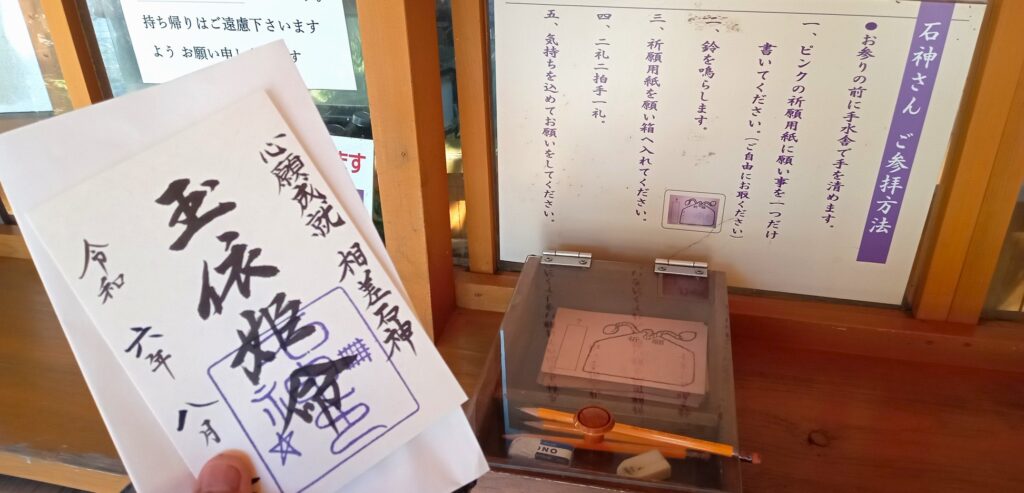 持ち帰りはご遠慮下さいます
よう お願い申し
ます
心願成就 相差石神
玉依姫命
令和 六年 八月
石神さん ご参拝方法
●お参りの前に手水舎で手を清めます。
一、ピンクの祈願用紙に願い事を一つだけ
書いてください。(ご自由にお取ください)
二、鈴を鳴らします。
三、祈願用紙を願い箱へ入れてください。
四、二礼二拍手一礼。
五、気持ちを込めてお願いをしてください。